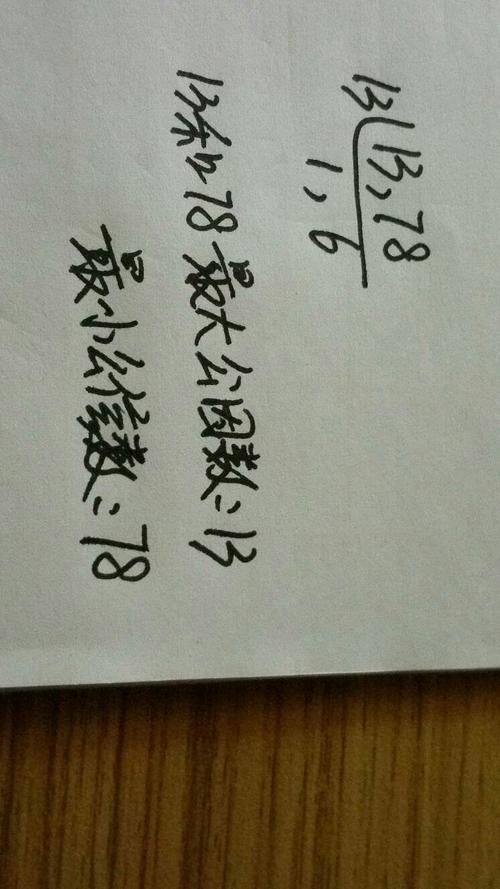 13 13,78
1,6
13和78最大公因数=13
最小公倍数=78